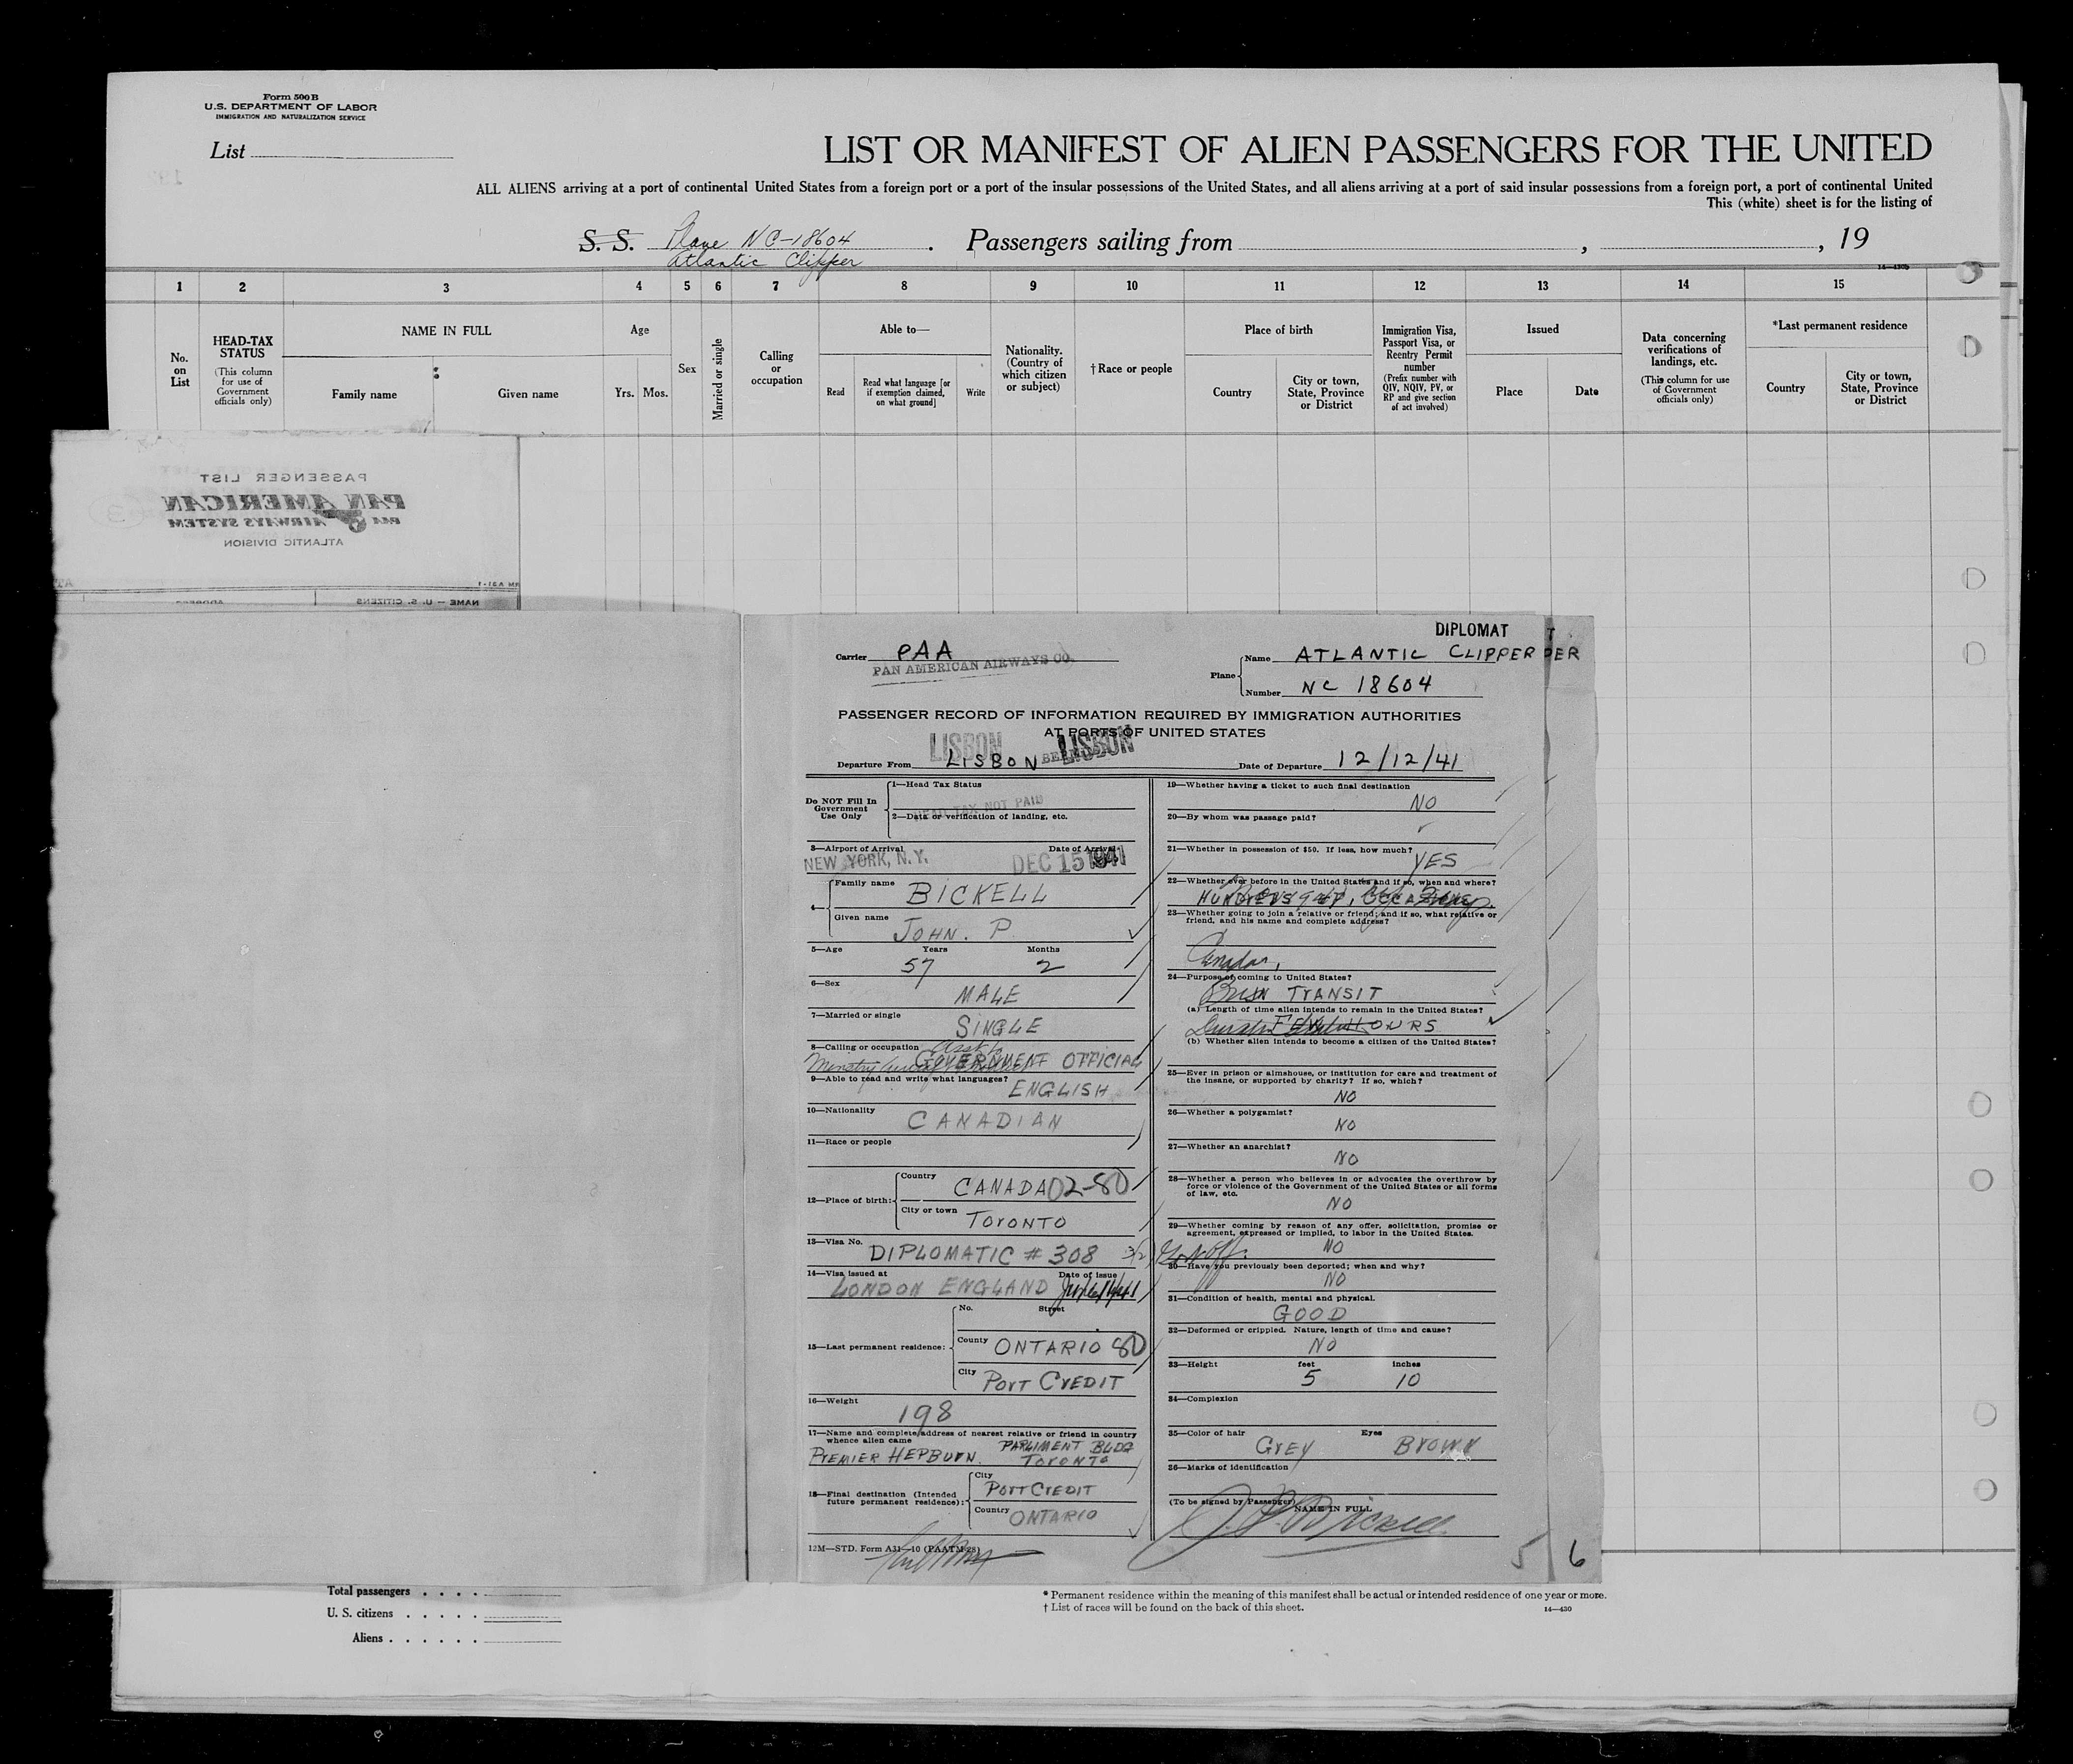 Form 500B
U.S. DEPARTMENT OF LABOR
IMMIGRATION AND NATURALIZATION SERVICE
List
LIST OR MANIFEST OF ALIEN PASSENGERS FOR THE UNITED
ALL ALIENS arriving at a port of continental United States from a foreign port or a port of the insular possessions of the United States, and all aliens arriving at a port of said insular possessions from a foreign port, a port of continental United
This (white) sheet is for the listing of
S. S. Plane NC-18604 . Passengers sailing from , , 19
Atlantic Clipper
1 2 3 4 5 6 7 8 9 10 11 12 13 14 15
No. on List
HEAD-TAX STATUS
(This column for use of Government officials only)
NAME IN FULL
Family name Given name
Age
Yrs. Mos.
Sex
Married or single
Calling or occupation
Able to—
Read
Read what language [or if exemption claimed, on what ground]
Write
Nationality. (Country of which citizen or subject)
†Race or people
Place of birth
Country
City or town, State, Province or District
Immigration Visa, Passport Visa, or Reentry Permit number
(Prefix number with QIV, NQIV, PV, or RP and give section of act involved)
Issued
Place Date
Data concerning verifications of landings, etc.
(This column for use of Government officials only)
*Last permanent residence
Country
City or town, State, Province or District
PASSENGER LIST
PAN AMERICAN
PAA AIRWAYS SYSTEM
ATLANTIC DIVISION
NAME — U. S. CITIZENS ADDRESS
DIPLOMAT
Carrier PAA
PAN AMERICAN AIRWAYS CO.
Plane Name ATLANTIC CLIPPER PER
Number NC 18604
PASSENGER RECORD OF INFORMATION REQUIRED BY IMMIGRATION AUTHORITIES
AT PORTS OF UNITED STATES
LISBON LISBON
Departure From LISBON Date of Departure 12/12/41
Do NOT Fill In Government Use Only
1—Head Tax Status
HEAD TAX NOT PAID
2—Data or verification of landing, etc.
3—Airport of Arrival Date of Arrival
NEW YORK, N.Y. DEC 15 1941
4— Family name BICKELL
Given name JOHN. P
5—Age Years Months
57 2
6—Sex MALE
7—Married or single SINGLE
8—Calling or occupation GOVERNMENT OFFICIAL
9—Able to read and write what languages? ENGLISH
10—Nationality CANADIAN
11—Race or people
12—Place of birth: Country CANADA 02-80
City or town TORONTO
13—Visa No. DIPLOMATIC # 308
14—Visa issued at Date of issue
LONDON ENGLAND
15—Last permanent residence: No. Street
County ONTARIO 80
City PORT CREDIT
16—Weight 198
17—Name and complete address of nearest relative or friend in country whence alien came
PREMIER HEPBURN. PARLIMENT BLDG TORONTO
18—Final destination (Intended future permanent residence): City PORT CREDIT
Country ONTARIO
12M—STD. Form A31—10 (PAATM-28)
19—Whether having a ticket to such final destination
NO
20—By whom was passage paid?
21—Whether in possession of $50. If less, how much?
YES
22—Whether ever before in the United States and if so, when and where?
23—Whether going to join a relative or friend; and if so, what relative or friend, and his name and complete address?
Canada,
24—Purpose of coming to United States?
IN TRANSIT
(a) Length of time alien intends to remain in the United States?
FEW HOURS
(b) Whether alien intends to become a citizen of the United States?
25—Ever in prison or almshouse, or institution for care and treatment of the insane, or supported by charity? If so, which?
NO
26—Whether a polygamist?
NO
27—Whether an anarchist?
NO
28—Whether a person who believes in or advocates the overthrow by force or violence of the Government of the United States or all forms of law, etc.
NO
29—Whether coming by reason of any offer, solicitation, promise or agreement, expressed or implied, to labor in the United States.
NO
30—Have you previously been deported; when and why?
NO
31—Condition of health, mental and physical.
GOOD
32—Deformed or crippled. Nature, length of time and cause?
NO
33—Height feet inches
5 10
34—Complexion
35—Color of hair Eyes
GREY BROWN
36—Marks of identification
(To be signed by Passenger) NAME IN FULL
J. P. Bickell
5 6
Total passengers . . . .
U. S. citizens . . . . .
Aliens . . . . . .
* Permanent residence within the meaning of this manifest shall be actual or intended residence of one year or more.
† List of races will be found on the back of this sheet.
14—430